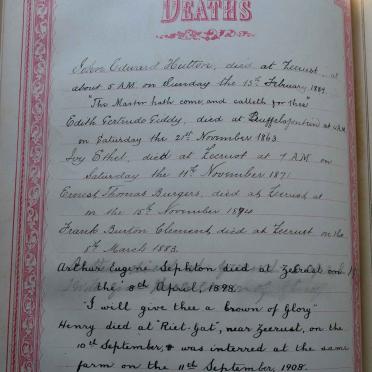 DEATHS
John Edward Hutton, died at Zeerust at
about 5 A.M. on Tuesday the 13th February, 1889.
"The Master hath come, and calleth for thee"
Edith Gertrude Eddy, died at Buffelsfontein at A.M.
on Saturday the 21st November 1863.
Ivy Ethel, died at Zeerust at 7 A.M. on
Saturday the 11th November, 1871
Ernest Thomas Burgers, died at Zeerust at
on the 15th November 1894
Frank Burton Clement, died at Zeerust on the
8th March 1883.
Arthur Eugene Sephton died at Zeerust on
the 8th April, 1898.
"I will give thee a Crown of Glory"
Henry died at "Riet-gat", near Zeerust, on the
10th September, & was interred at the same
farm on the 11th September, 1908.